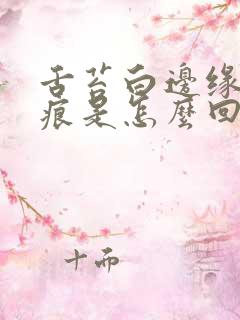 舌苔白邊缘
痕是怎麼回
十而